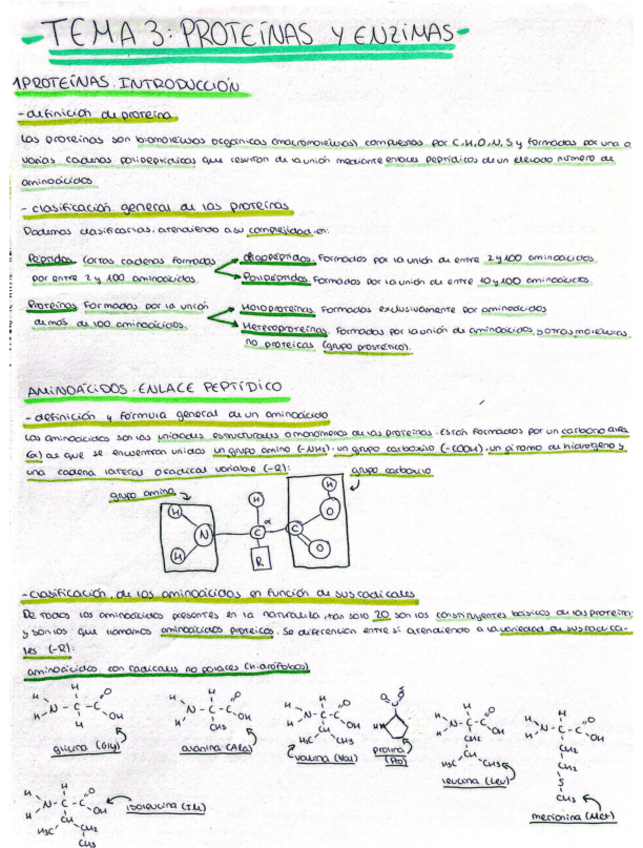 -TEMA 3: PROTEÍNAS Y ENZIMAS-
1 PROTEÍNAS. INTRODUCCIÓN
- definición de proteína
Las proteínas son biomoléculas orgánicas (macromoléculas) compuestas por C, H, O, N, S y formadas por una o
varias cadenas polipeptídicas que resultan de la unión mediante enlaces peptídicos de un elevado número de
aminoácidos
- clasificación general de las proteínas
Podemos clasificarlas, atendiendo a su complejidad, en:
Péptidos. Cortas cadenas formadas
por entre 2 y 100 aminoácidos.
Oligopéptidos. Formados por la unión de entre 2 y 100 aminoácidos
Polipéptidos. Formados por la unión de entre 10 y 100 aminoácidos
Proteínas. Formadas por la unión
de más de 100 aminoácidos.
Holoproteínas. Formadas exclusivamente por aminoácidos
Heteroproteínas. Formadas por la unión de aminoácidos, y otras moléculas
no proteicas (grupo prostético).
AMINOÁCIDOS. ENLACE PEPTÍDICO
- definición y fórmula general de un aminoácido
Los aminoácidos son las unidades estructurales o monómeros de las proteínas. Están formados por un carbono
(α) as que se encuentran unidos un grupo amino (-NH2), un grupo carboxilo (-COOH), un átomo de hidrógeno y
una cadena lateral o radical variable (-R):
grupo amino
grupo carboxilo
H
H
N
H
C
α
R
C
H
O
O
- clasificación de los aminoácidos en función de sus radicales
De todos los aminoácidos presentes en la naturaleza, tan solo 20 son los constituyentes básicos de las proteínas
y son los que llamamos aminoácidos proteicos. Se diferencian entre sí atendiendo a la variedad de sus radica-
les (-R):
aminoácidos con radicales no polares (hidrófobos)
glicina (Gly)
alanina (Ala)
valina (Val)
prolina
(Pro)
leucina (Leu)
metionina (Met)
isoleucina (Ile)